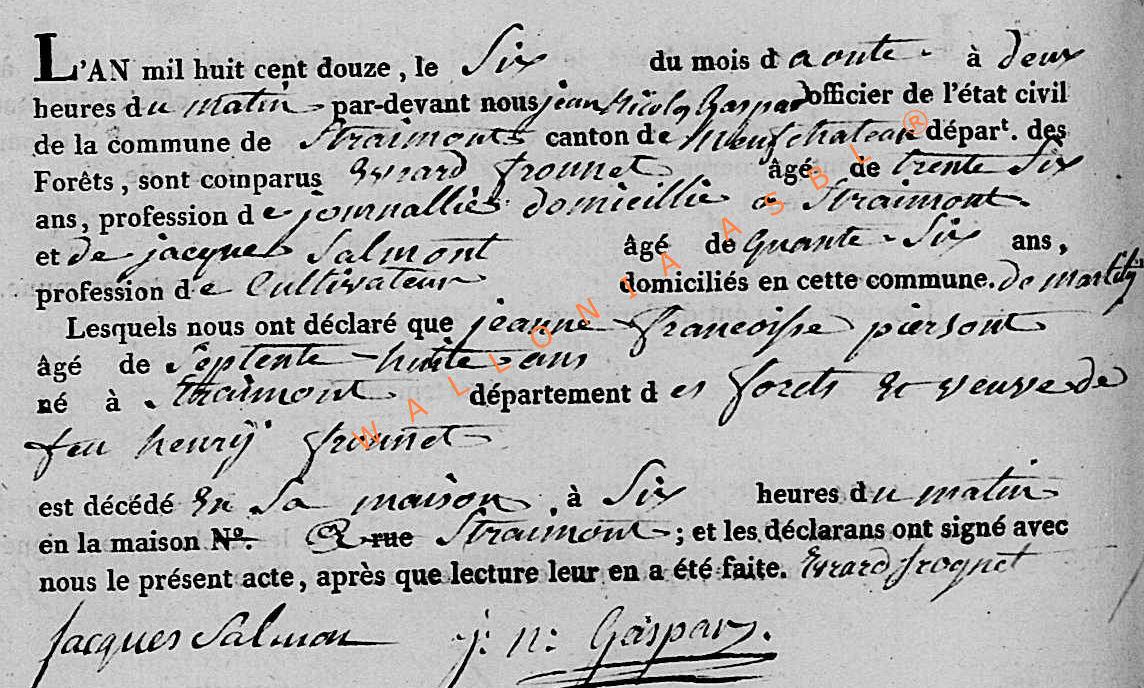 L'AN mil huit cent douze, le Six du mois d aoute à deux
heures du matin par-devant nous jean Nicolas Gaspard officier de l'état civil
de la commune de Straimont canton de Neufchateau départ. des
Forêts, sont comparus Evrard frognet âgé de trente Six
ans, profession de journallier domicillie a Straimont
et de jacques Salmont âgé de Six ans,
profession de Cultivateur domiciliés en cette commune. de
Lesquels nous ont déclaré que jeanne francoisse piersont
âgé de Septente huite ans
né à Straimont département des forets & veuve de
feu henrÿ frognet
est décédé En Sa maison, à Six heures du matin
en la maison No. rue Straimont; et les déclarans ont signé avec
nous le présent acte, après que lecture leur en a été faite. Evrard frognet
Jacques Salmon j: n: Gaspar.
WALLONIA ASBL ®